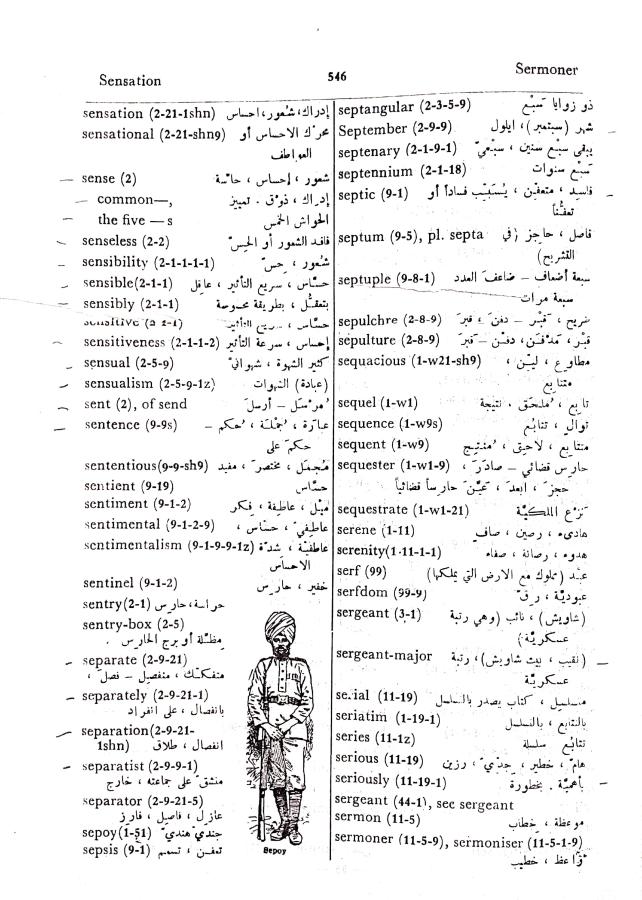 Sensation
546
Sermoner
sensation (2-21-1shn) إدراك، شعور، احساس
sensational (2-21-shn9) محرّك الاحساس أو
العواطف
sense (2) شعور ، إحساس ، حاسّة
common—, إدراك ، ذوق . تمييز
the five — s الحواسّ الخمس
senseless (2-2) فاقد الشعور أو الحِسّ
sensibility (2-1-1-1-1) شعور ، حسّ
sensible(2-1-1) حسّاس ، سريع التأثير ، عاقل
sensibly (2-1-1) بتعقّل ، بطريقة محسوسة
sensitive (2-1-1) حسّاس ، سريع التأثير
sensitiveness (2-1-1-2) إحساس ، سرعة التأثير
sensual (2-5-9) كثير الشهوة ، شهوانيّ
sensualism (2-5-9-1z) (عبادة) الشهوات
sent (2), of send مُرسَل – أرسلَ
sentence (9-9s) عبارة ، جُملة ، حُكم –
حكم على
sententious(9-9-sh9) مُجمَل ، مختصر ، مفيد
sentient (9-19) حسّاس
sentiment (9-1-2) مَيْل ، عاطفة ، فِكر
sentimental (9-1-2-9) عاطفيّ ، حسّاس ،
sentimentalism (9-1-9-9-1z) عاطفيّة ، شدّة
الاحساس
sentinel (9-1-2) خفير ، حارس
sentry(2-1) حراسة، حارس
sentry-box (2-5)
مظلّة أو برج الحارس .
separate (2-9-21)
متفكّك ، منفصل – فصل ،
separately (2-9-21-1)
بانفصال ، على انفراد
separation(2-9-21-
1shn) انفصال ، طلاق
separatist (2-9-9-1)
منشقّ على جماعته ، خارج
separator (2-9-21-5)
عازل ، فاصل ، فارز
sepoy(1-51) جنديّ هنديّ
sepsis (9-1) تعفّن ، تسمّم
Sepoy
septangular (2-3-5-9) ذو زوايا سَبْع
September (2-9-9) شهر (سبتمبر) ، ايلول
septenary (2-1-9-1) يبقى سَبْع سنين ، سَبْعيّ
septennium (2-1-18) سَبْع سنوات
septic (9-1) فاسد ، متعفّن ، يُسبِّب فساداً أو
تعفُّناً
septum (9-5), pl. septa فاصل ، حاجز (في
التشريح)
septuple (9-8-1) سبعة أضعاف – ضاعفَ العدد
سبعة مرات
sepulchre (2-8-9) ضريح ، قَبْر – دفنَ ، قبرَ
sepulture (2-8-9) قَبْر ، مَدْفن ، دفْن – قبرَ
sequacious (1-w21-sh9) مطاوع ، ليّن ،
متتابع
sequel (1-w1) تابع ، مُلحَق ، نتيجة
sequence (1-w9s) توالٍ ، تتابُع
sequent (1-w9) متتابع ، لاحق ، مُنتِج
sequester (1-w1-9) حارس قضائي – صادرَ ،
حجزَ ، ابعدَ ، عيّنَ حارساً قضائياً
sequestrate (1-w1-21) نزع الملكيّة
serene (1-11) هادىء ، رصين ، صافٍ
serenity(1-11-1-1) هدوء ، رصانة ، صفاء
serf (99) عبْد (مملوك مع الارض التي يملكها)
serfdom (99-9) عبوديّة ، رِقّ
sergeant (3-1) (شاويش) ، نائب (وهي رتبة
عسكريّة)
sergeant-major (نقيب ، بيت شاويش) ، رتبة
عسكريّة
serial (11-19) مسلسل ، كتاب يصدر بالتسلسل
seriatim (1-19-1) بالتتابع ، بالتسلسل
series (11-1z) تتابُع سلسلة
serious (11-19) هامّ ، خطير ، جدّيّ ، رزين
seriously (11-19-1) بأهميّة . بخطورة
sergeant (44-1), see sergeant
sermon (11-5) موعظة ، خطاب
sermoner (11-5-9), sermoniser (11-5-1-9)
واعظ ، خطيب